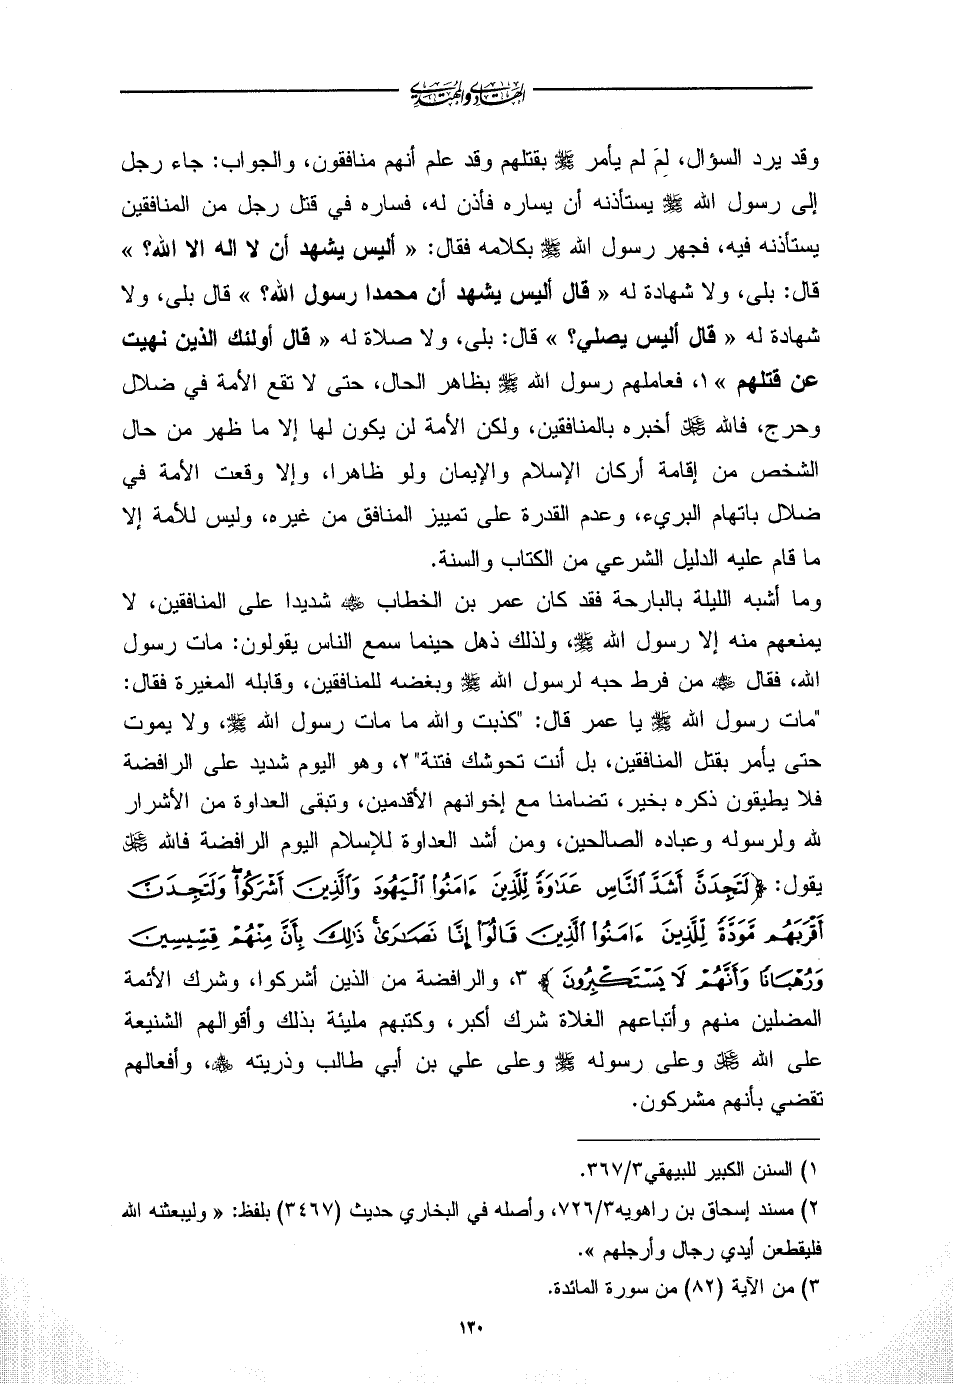 الهادي والمهتدي
وقد يرد السؤال، لِمَ لم يأمر ﷺ بقتلهم وقد علم أنهم منافقون، والجواب: جاء رجل
إلى رسول الله ﷺ يستأذنه أن يساره فأذن له، فساره في قتل رجل من المنافقين
يستأذنه فيه، فجهر رسول الله ﷺ بكلامه فقال: « أليس يشهد أن لا اله الا الله؟ »
قال: بلى، ولا شهادة له « قال أليس يشهد أن محمدا رسول الله؟ » قال بلى، ولا
شهادة له « قال أليس يصلي؟ » قال: بلى، ولا صلاة له « قال أولئك الذين نهيت
عن قتلهم »١، فعاملهم رسول الله ﷺ بظاهر الحال، حتى لا تقع الأمة في ضلال
وحرج، فالله ﷻ أخبره بالمنافقين، ولكن الأمة لن يكون لها إلا ما ظهر من حال
الشخص من إقامة أركان الإسلام والإيمان ولو ظاهرا، وإلا وقعت الأمة في
ضلال باتهام البريء، وعدم القدرة على تمييز المنافق من غيره، وليس للأمة إلا
ما قام عليه الدليل الشرعي من الكتاب والسنة.
وما أشبه الليلة بالبارحة فقد كان عمر بن الخطاب ﷺ شديدا على المنافقين، لا
يمنعهم منه إلا رسول الله ﷺ، ولذلك ذهل حينما سمع الناس يقولون: مات رسول
الله، فقال ﷺ من فرط حبه لرسول الله ﷺ وبغضه للمنافقين، وقابله المغيرة فقال:
"مات رسول الله ﷺ يا عمر قال: "كذبت والله ما مات رسول الله ﷺ، ولا يموت
حتى يأمر بقتل المنافقين، بل أنت تحوشك فتنة"٢، وهو اليوم شديد على الرافضة
فلا يطيقون ذكره بخير، تضامنا مع إخوانهم الأقدمين، وتبقى العداوة من الأشرار
لله ولرسوله وعباده الصالحين، ومن أشد العداوة للإسلام اليوم الرافضة فالله ﷻ
يقول: ﴿لَتَجِدَنَّ أَشَدَّ النَّاسِ عَدَاوَةً لِّلَّذِينَ ءَامَنُوا الْيَهُودَ وَالَّذِينَ أَشْرَكُوا ۖ وَلَتَجِدَنَّ
أَقْرَبَهُم مَّوَدَّةً لِّلَّذِينَ ءَامَنُوا الَّذِينَ قَالُوا إِنَّا نَصَارَىٰ ۚ ذَٰلِكَ بِأَنَّ مِنْهُمْ قِسِّيسِينَ
وَرُهْبَانًا وَأَنَّهُمْ لَا يَسْتَكْبِرُونَ﴾ ٣، والرافضة من الذين أشركوا، وشرك الأئمة
المضلين منهم وأتباعهم الغلاة شرك أكبر، وكتبهم مليئة بذلك وأقوالهم الشنيعة
على الله ﷻ وعلى رسوله ﷺ وعلى علي بن أبي طالب وذريته ﷺ، وأفعالهم
تقضي بأنهم مشركون.
١) السنن الكبير للبيهقي٣/٣٦٧.
٢) مسند إسحاق بن راهويه٣/٧٢٦، وأصله في البخاري حديث (٣٤٦٧) بلفظ: « وليبعثنه الله
فليقطعن أيدي رجال وأرجلهم ».
٣) من الآية (٨٢) من سورة المائدة.
١٣٠